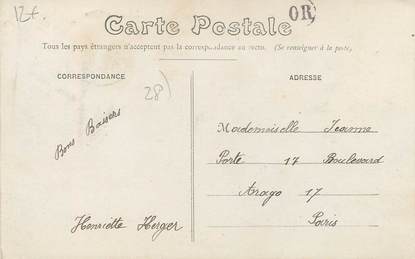 12+
OR
Carte Postale
Tous les pays étrangers n'acceptent pas la correspondance au recto. (Se renseigner à la poste).
CORRESPONDANCE
ADRESSE
28)
Bons Baisers
Mademoiselle Jeanne
Porte 17 Boulevard
Arago 17
Paris
Henriette Herger